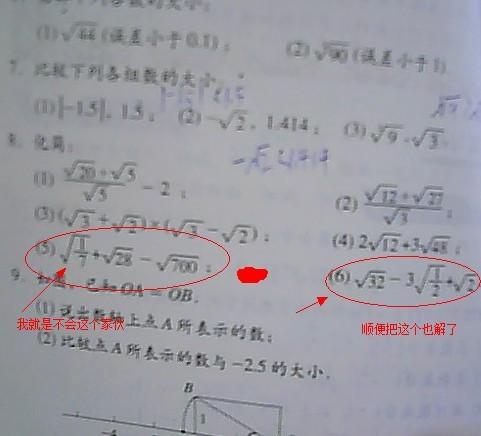 (1) √44 (误差小于0.1); (2) √90 (误差小于1)
7. 比较下列各组数的大小.
(1) |-1.5|, 1.5; (2) -√2, 1.414; (3) √9, √3
8. 化简:
(1) (√20+√5)/√5 - 2; (2) (√12+√27)/√3;
(3) (√3+√2)×(√3-√2); (4) 2√12+3√48;
(5) √(1/7)+√28-√700; (6) √32-3√(1/2)+√2
9. 如图, 已知OA=OB.
我就是不会这个家伙
顺便把这个也解了
(1) 说出数轴上点A所表示的数;
(2) 比较点A所表示的数与-2.5的大小.
B
1